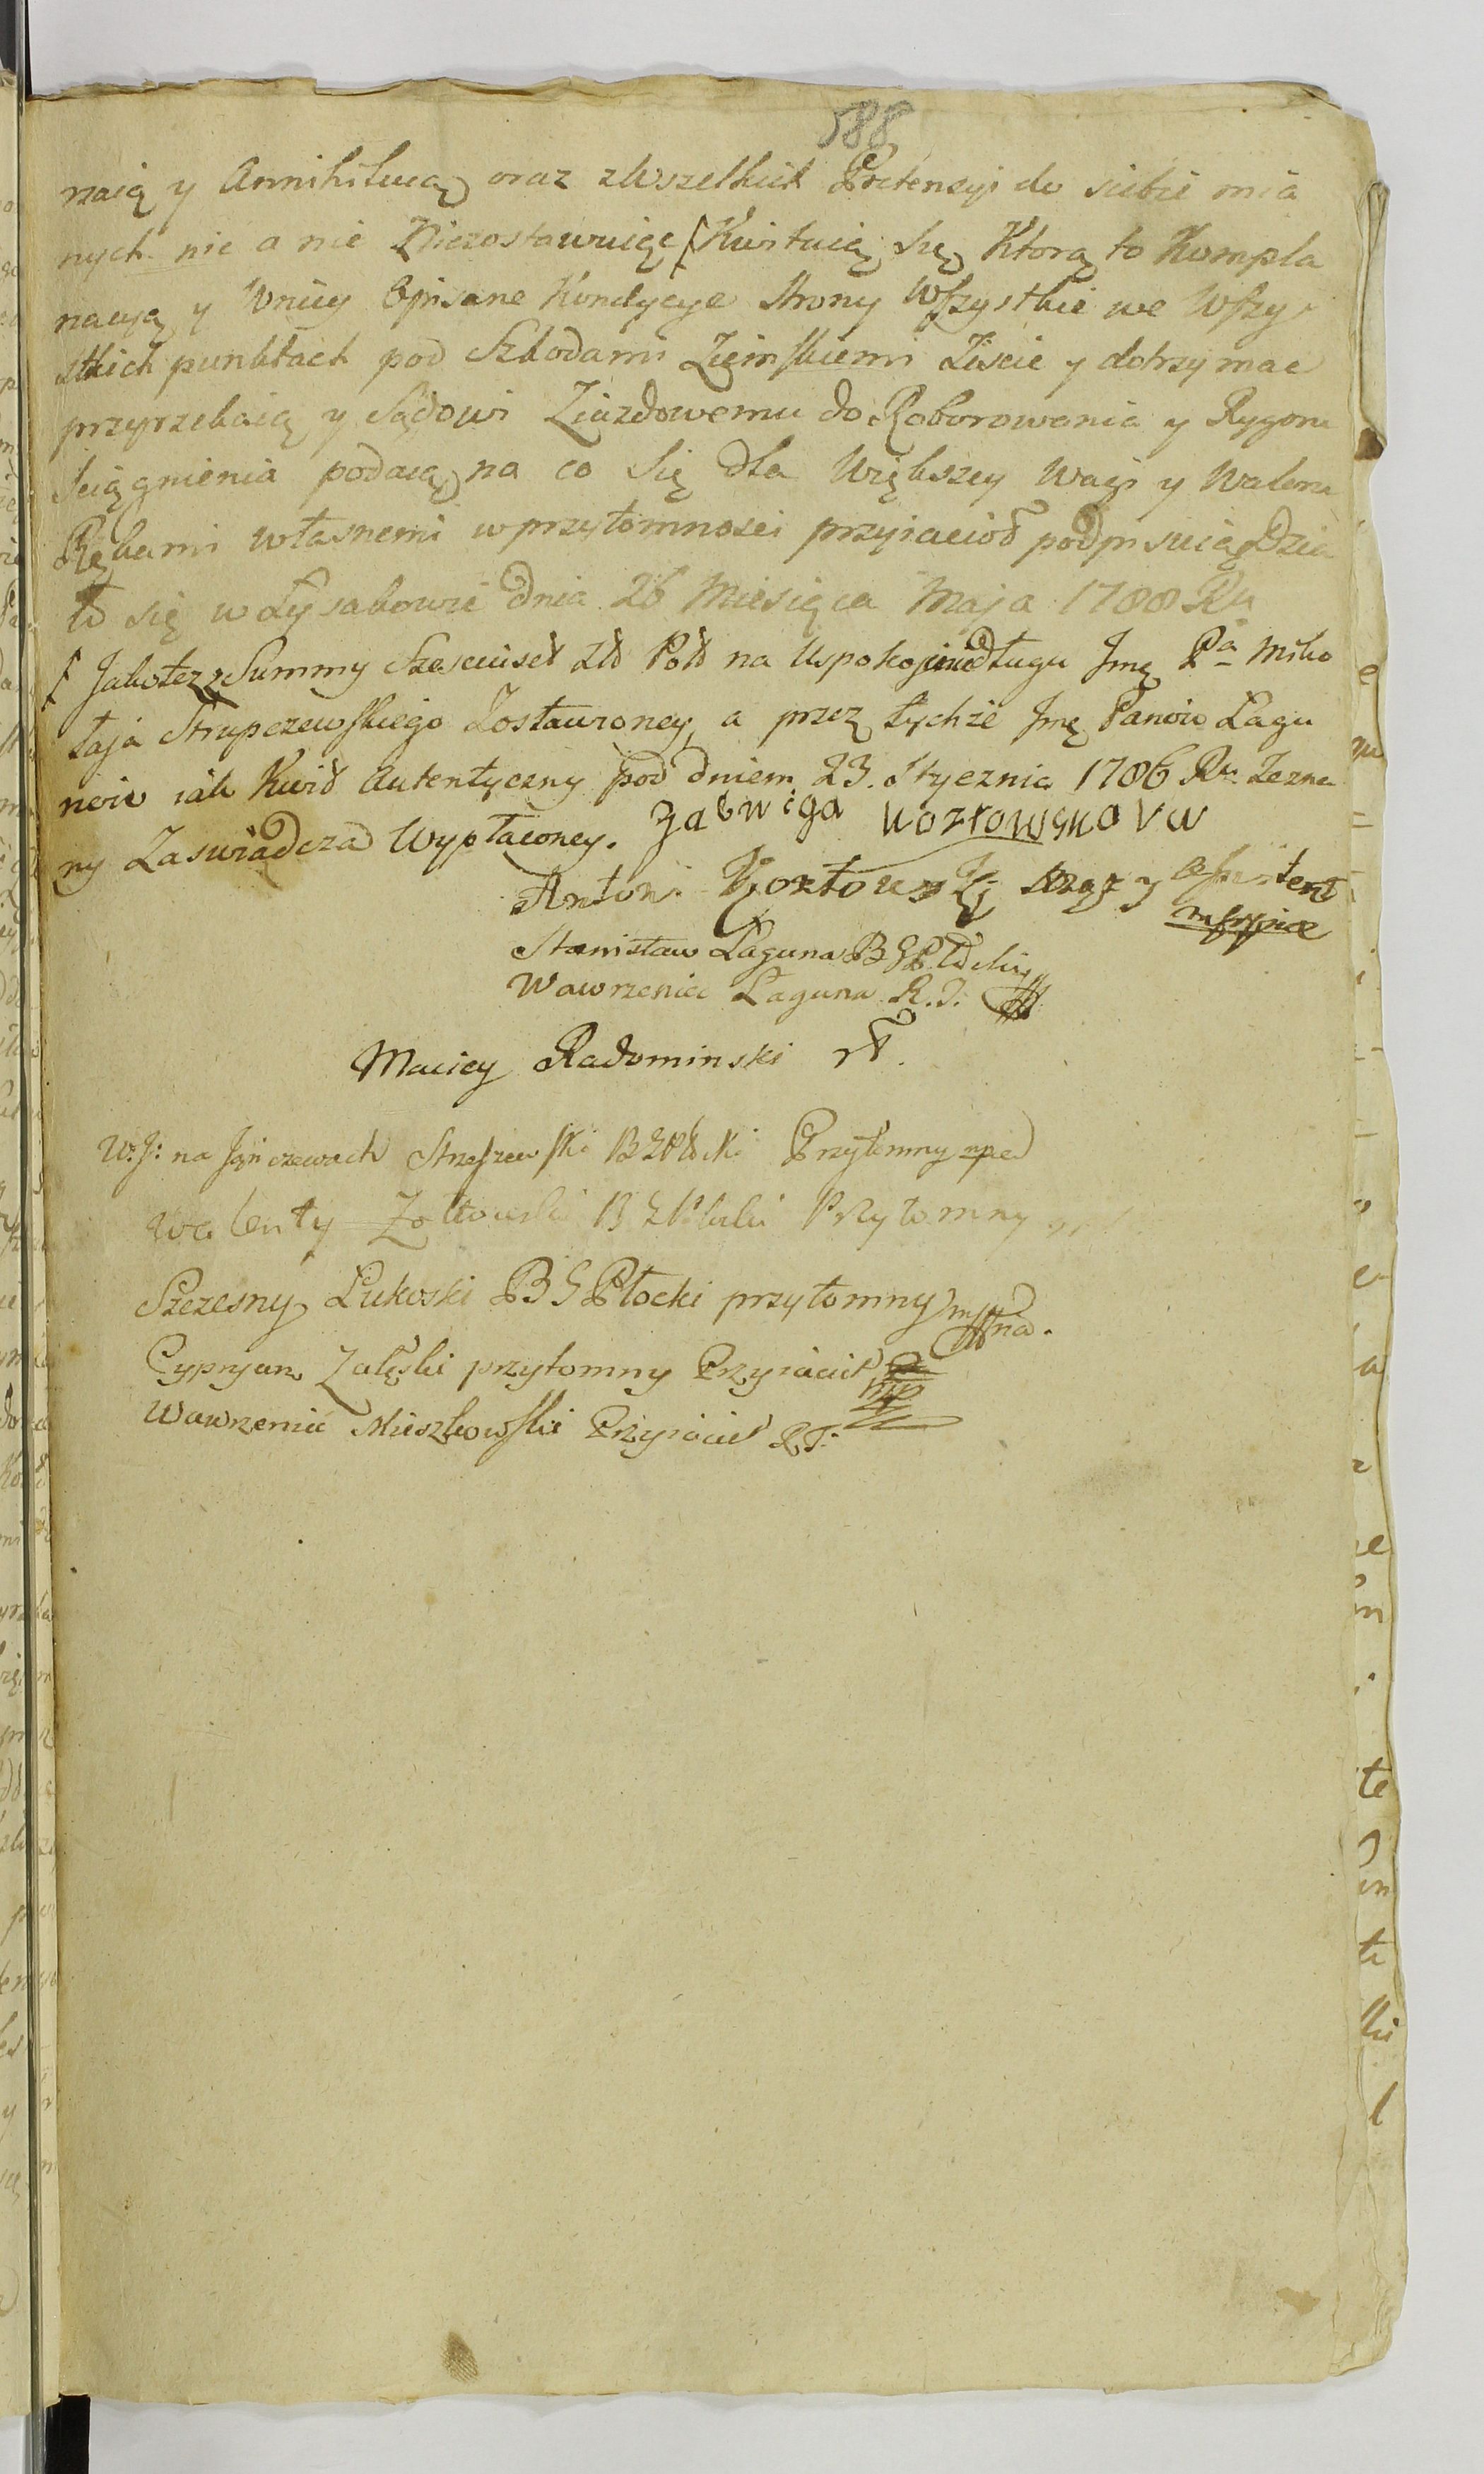 588
rzaią y Annihiluią oraz zWszelkich Pretensyi do siebie mia
nych nic a nic Niezostawuiąc [Kwituią Się, Ktorą to Kompla
nacyą y Wniey Opisane Kondycye Strony Wszystkie we Wszy
stkich punktach pod Szkodami Ziemskiemi Ziscic y dotrzymac
przyrzekaią y Sądowi Ziazdowemu do Roborowania y Rygoru
Sciągnienia podaią, na co Się dla Większey Wagi y Waloru
Rękami własnemi w przytomnosci przyiacioł podpisuią Dzia
ło się w Łysakowie dnia 26 Miesiąca Maja 1788 Ru
[ Jakotez z Summy Szesciuset Zł Pol na Uspokojenie długu Jmę Pa Miko
łaja Strupczewskiego Zostawioney, a przez tychże Jmę Panow Lagu
now iak Kwit Autentyczny pod dniem 23. Stycznia 1786 Ru Zezna
ny Zaswiadcza Wypłaconey.
Jadwiga Kozłowska
Antoni Kozłowski
Stanisław Laguna B Z Płocki
Wawrzeniec Laguna R. Z.
Maciey Radominski
W: J: na Strzeszewski B Z Płocki Przytomny mpa
Walenty Zołtowski B Z Płocki Przytomny
Szczesny Lukoski B Z Płocki przytomny
Cypryan Zalęski przytomny Przyiaciel mp
Wawrzeniec Mieszkowski Przyiaciel